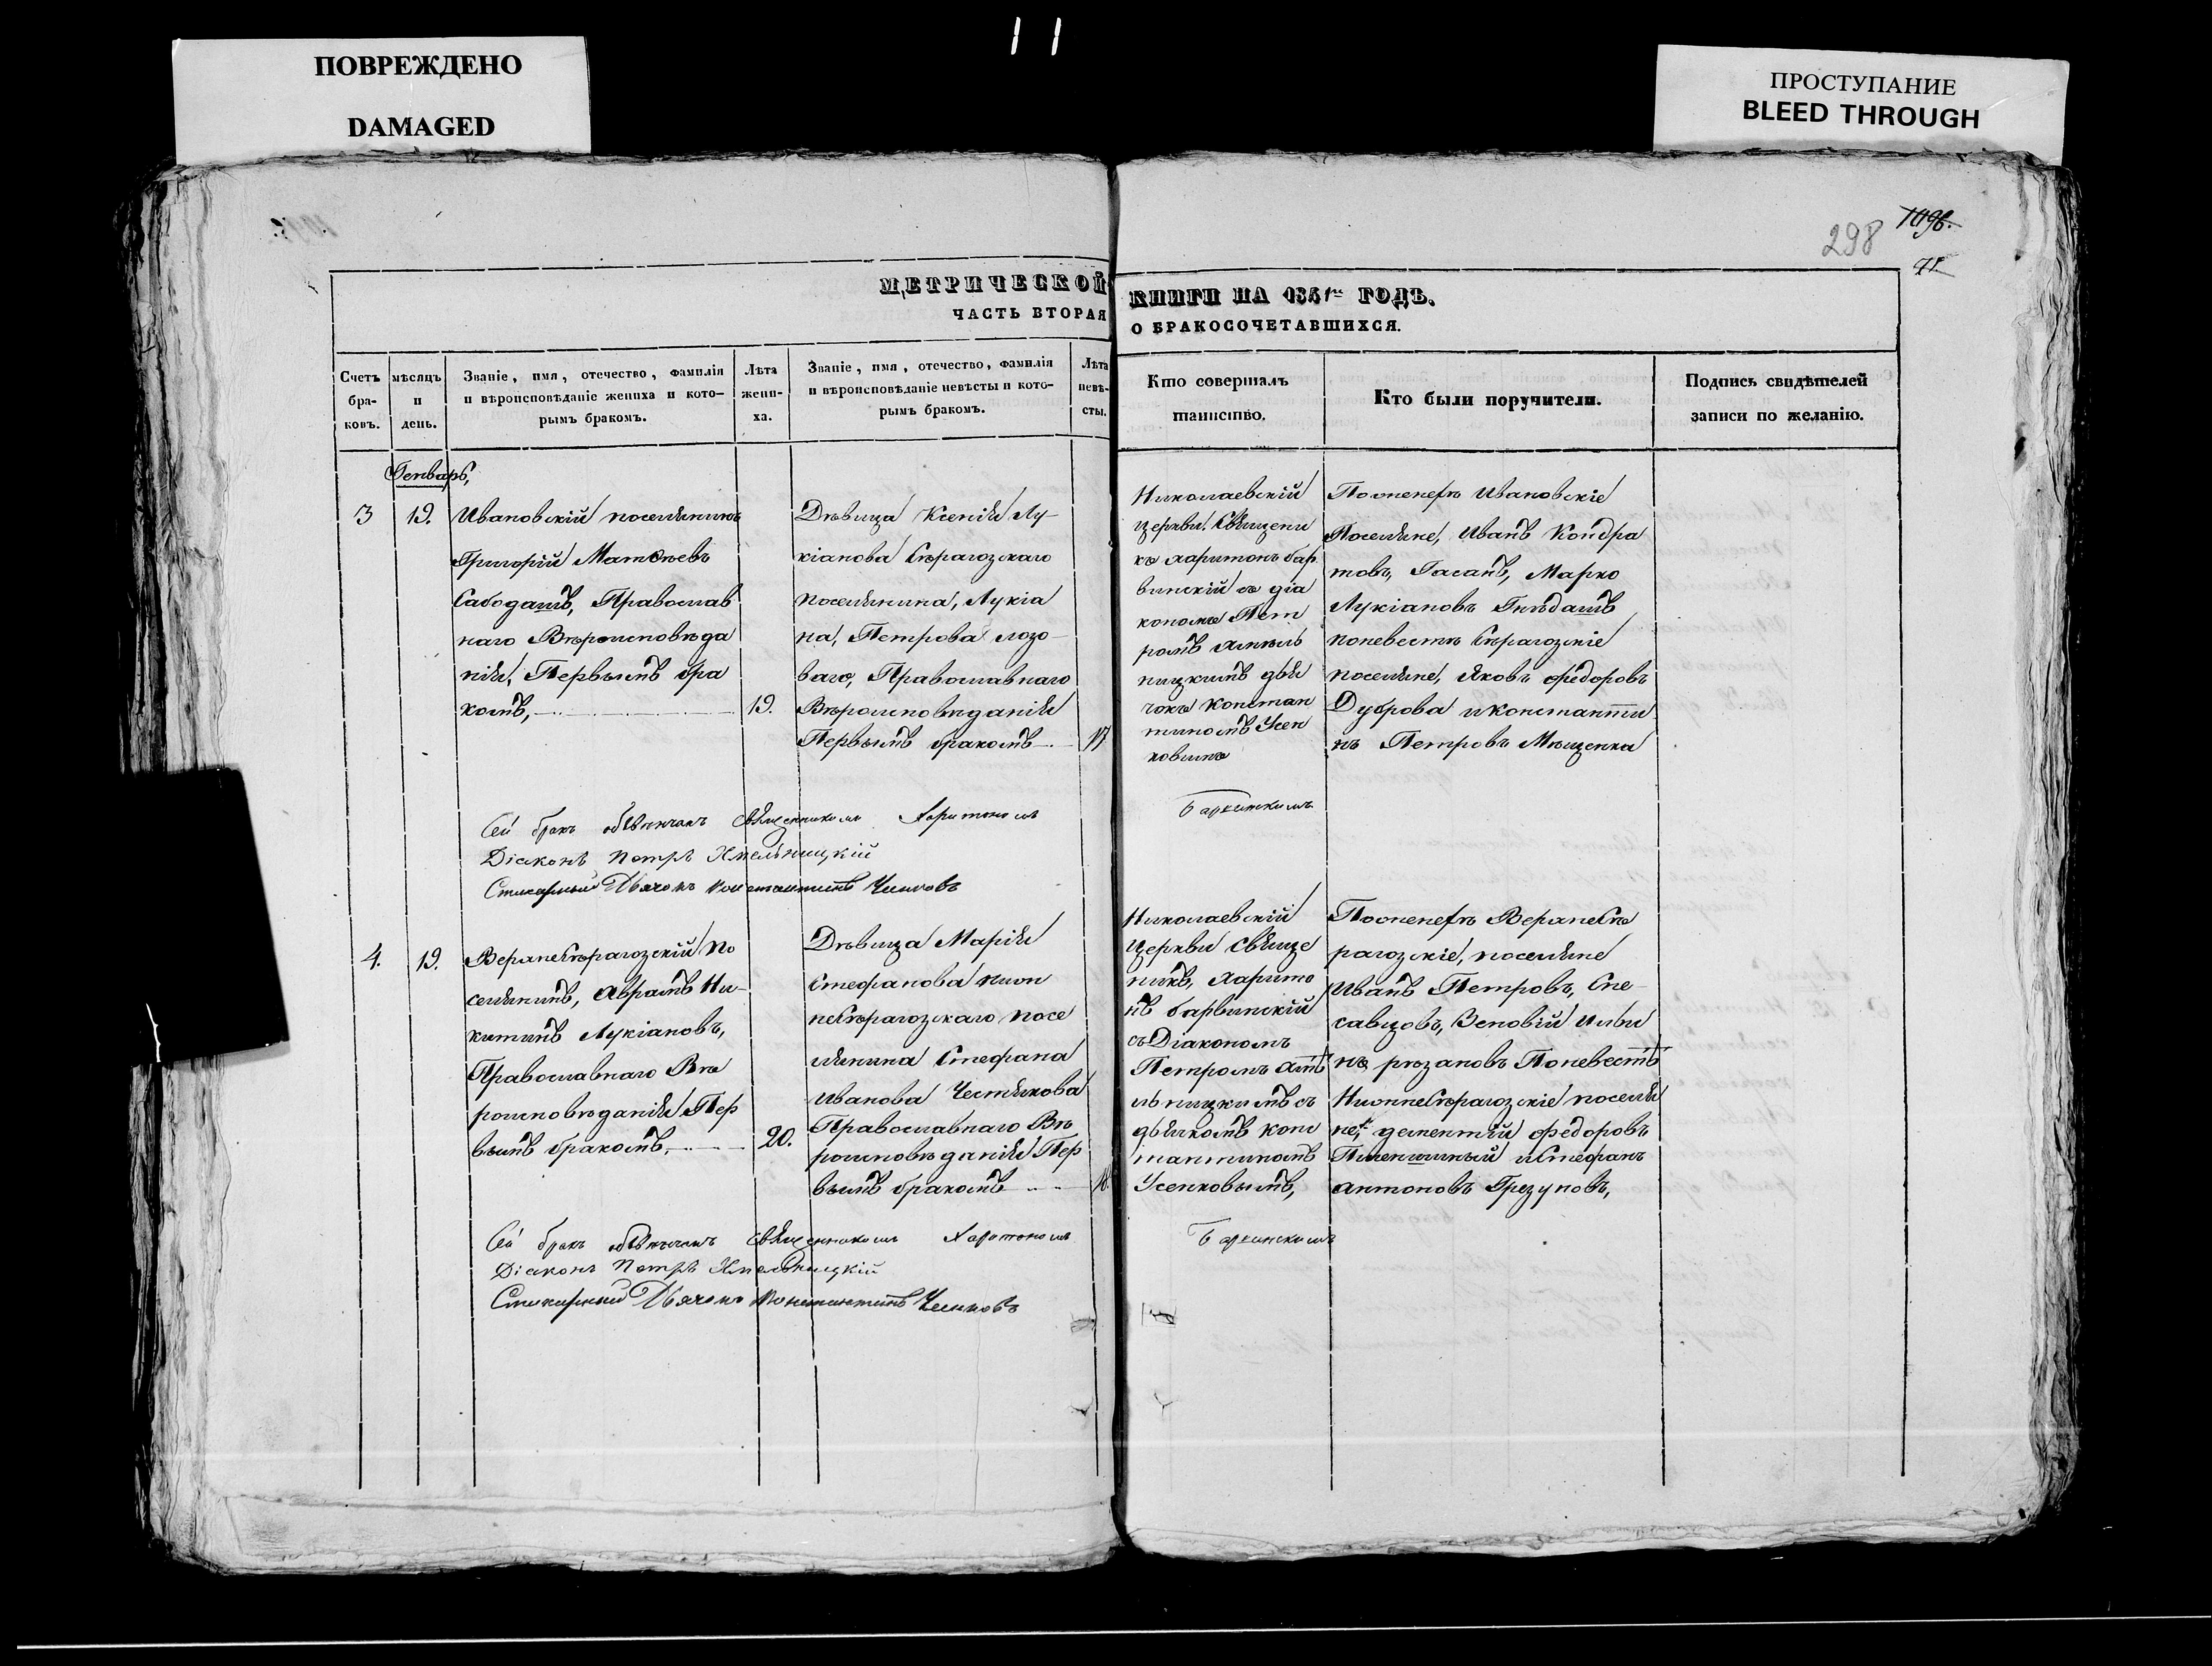 ПОВРЕЖДЕНО
DAMAGED
ПРОСТУПАНИЕ
BLEED THROUGH
298
1096.
71.
МЕТРИЧЕСКОЙ КНИГИ НА 1851й ГОДЪ.
ЧАСТЬ ВТОРАЯ О БРАКОСОЧЕТАВШИХСЯ.
Счетъ
бра-
ковъ.
мѣсяцъ
и
день.
Званіе, имя, отечество, фамилія
и вѣроисповѣданіе жениха и кото-
рымъ бракомъ.
Лѣта
жени-
ха.
Званіе, имя, отечество, фамилія
и вѣроисповѣданіе невѣсты и кото-
рымъ бракомъ.
Лѣта
невѣ-
сты.
Кто совершалъ
таинство.
Кто были поручители.
Подпись свидѣтелей
записи по желанію.
Генварь,
3
19.
Ивановскій поселянинъ
Григорій Матѳѣевъ
Сабодашъ, Православ
наго Вѣроисповѣда
нія, Первымъ бра
комъ,
19.
Дѣвица Ксенія Лу-
кіанова Сѣрагозскаго
поселянина, Лукіа
на, Петрова Лозо-
ваго, Православнаго
Вѣроисповѣданія
Первымъ бракомъ
17
Николаевскій
церкви, Священи
къ Харитонъ бар
винскій съ діа
кономъ Пет
ромъ Хмѣль
ницкимъ дья
чокъ Констан
тиномъ Усен
ковымъ
Поженехъ Ивановскіе
Поселяне, Иванъ Кондра
товъ, Гасанъ, Марко
Лукіановъ Гнѣдашъ
поневестѣ Сѣрагозскіе
поселяне, Яковъ Федоровъ
Дуброва и Константи
нъ Петровъ Мищенка
Сей бракъ обвѣнчанъ священникомъ Харитономъ Барвинскимъ
Діаконъ Петръ Хмельницкій
Стихарный Дьячокъ Константинъ
4.
19.
ВерхнеСѣрагозскій По
селянинъ, Аврамъ Ни-
китинъ Лукіановъ,
Православнаго Вѣ
роисповѣданія Пер
вымъ бракомъ,
20.
Дѣвица Марія
Стефанова нижн
неСѣрагозскаго посе
лянина Стефана
Иванова Честякова
Православнаго Вѣ
роисповѣданія Пер
вымъ бракомъ
18.
Николаевскій
Церкви Свяще
никъ, Харито
нъ барвинскій
съ Діакономъ
Петромъ Хмѣ
льницкимъ съ
дьякомъ Конс
тантиномъ
Усенковымъ,
Поженехъ ВерхнеСѣ
рагозскіе, поселяне
Иванъ Петровъ, Сле-
савцовъ, Зеновій Ильи
нъ рѣзановъ Поневестѣ
НижнеСѣрагозскіе поселя
не, дементій Федоровъ
Пшеничный и Стефанъ
антоновъ Грезуновъ,
Сей бракъ обвѣнчанъ священникомъ Харитономъ Барвинскимъ
Діаконъ Петръ Хмельницкій
Стихарный Дьячокъ Константинъ